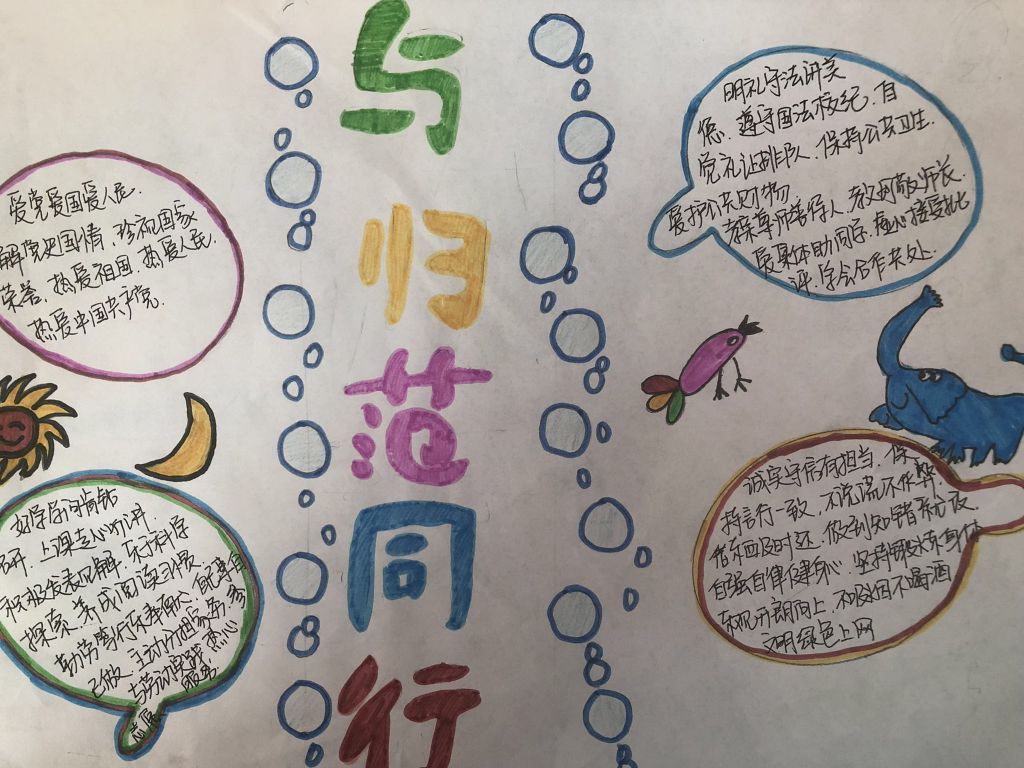 与
归
范
同
行
爱党爱国爱人民.
解党史国情,珍视国家
荣誉,热爱祖国,热爱人民,
热爱中国共产党.
好学多问肯钻
研.上课专心听讲
积极发表见解.乐于科学
探索.养成阅读习惯
勤劳笃行乐奉献.自己事自
己做,主动分担家务,参
与劳动实践.热心
志愿
服务
明礼守法讲美
德.遵守国法校纪,自
觉礼让排队.保持公共卫生.
爱护公共财物
孝亲尊师善待人.孝父母敬师长.
爱集体助同学,虚心接受批
评.学会合作共处.
诚实守信有担当.保
持言行一致,不说谎不作弊
借东西及时还.做到知错就改.
自强自律健身心.坚持锻炼身体
乐观开朗向上,不吸烟不喝酒
文明绿色上网